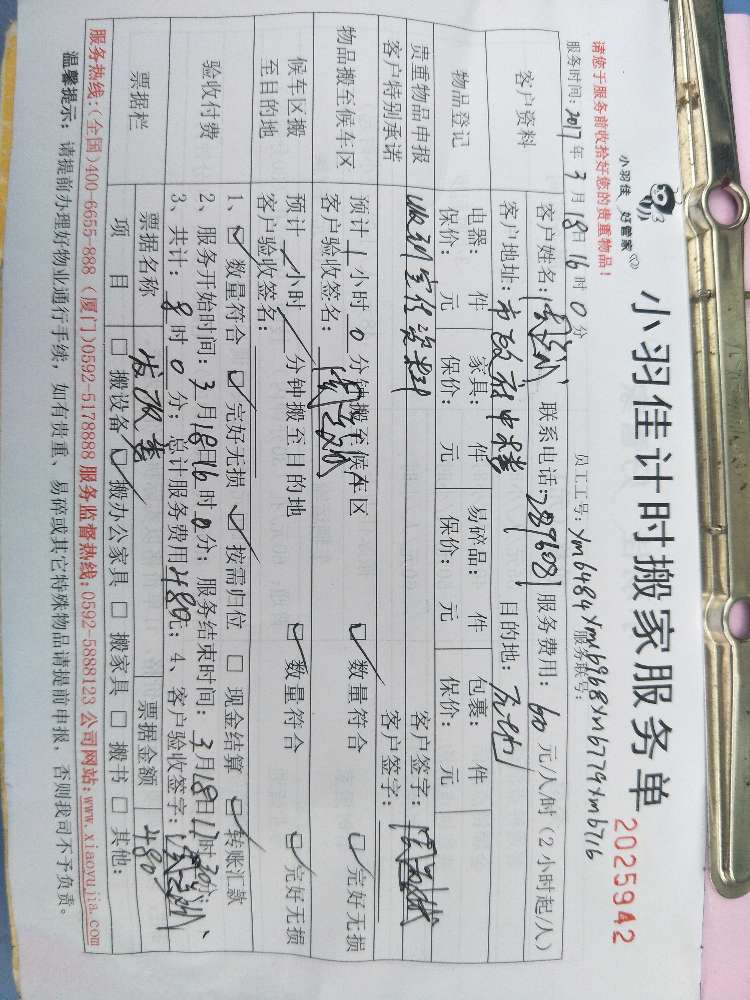 小羽佳 好管家
小羽佳计时搬家服务单
2025942
请您于服务前收拾好您的贵重物品！
员工工号：Xm6484 Xm6968 Xm6779 Xm6716
服务时间：2017年3月18日16时0分 服务联号：
客户资料
客户姓名： 联系电话：7897608 服务费用：60元/人/时（2小时起/人）
客户地址：市政府中 目的地：
物品登记
电器： 件 家具： 件 易碎品： 件 包裹： 件
保价： 元 保价： 元 保价： 元 保价： 元
贵重物品申报 收到宣传资料 客户签字：
客户特别承诺 客户签字：
物品搬至候车区
预计1小时0分钟搬至候车区 数量符合 完好无损
客户验收签名：
候车区搬至目的地
预计 小时 分钟搬至目的地 数量符合 完好无损
客户验收签名：
验收付费
1、 数量符合 完好无损 按需归位 现金结算 转账汇款
2、服务开始时间：3月18日16时0分；服务结束时间：3月18日17时30分；
3、共计：8时0分；总计服务费用480元；4、客户验收签字：
票据栏
票据名称 发改委 票据金额 480
项目 搬设备 搬办公家具 搬家具 搬书 其他：
服务热线：（全国）400-6655-888 （厦门）0592-5178888 服务监督热线：0592-5888123 公司网站：www.xiaoyujia.com
温馨提示：请提前办理好物业通行手续，如有贵重、易碎或其它特殊物品请提前申报，否则我司不予负责。